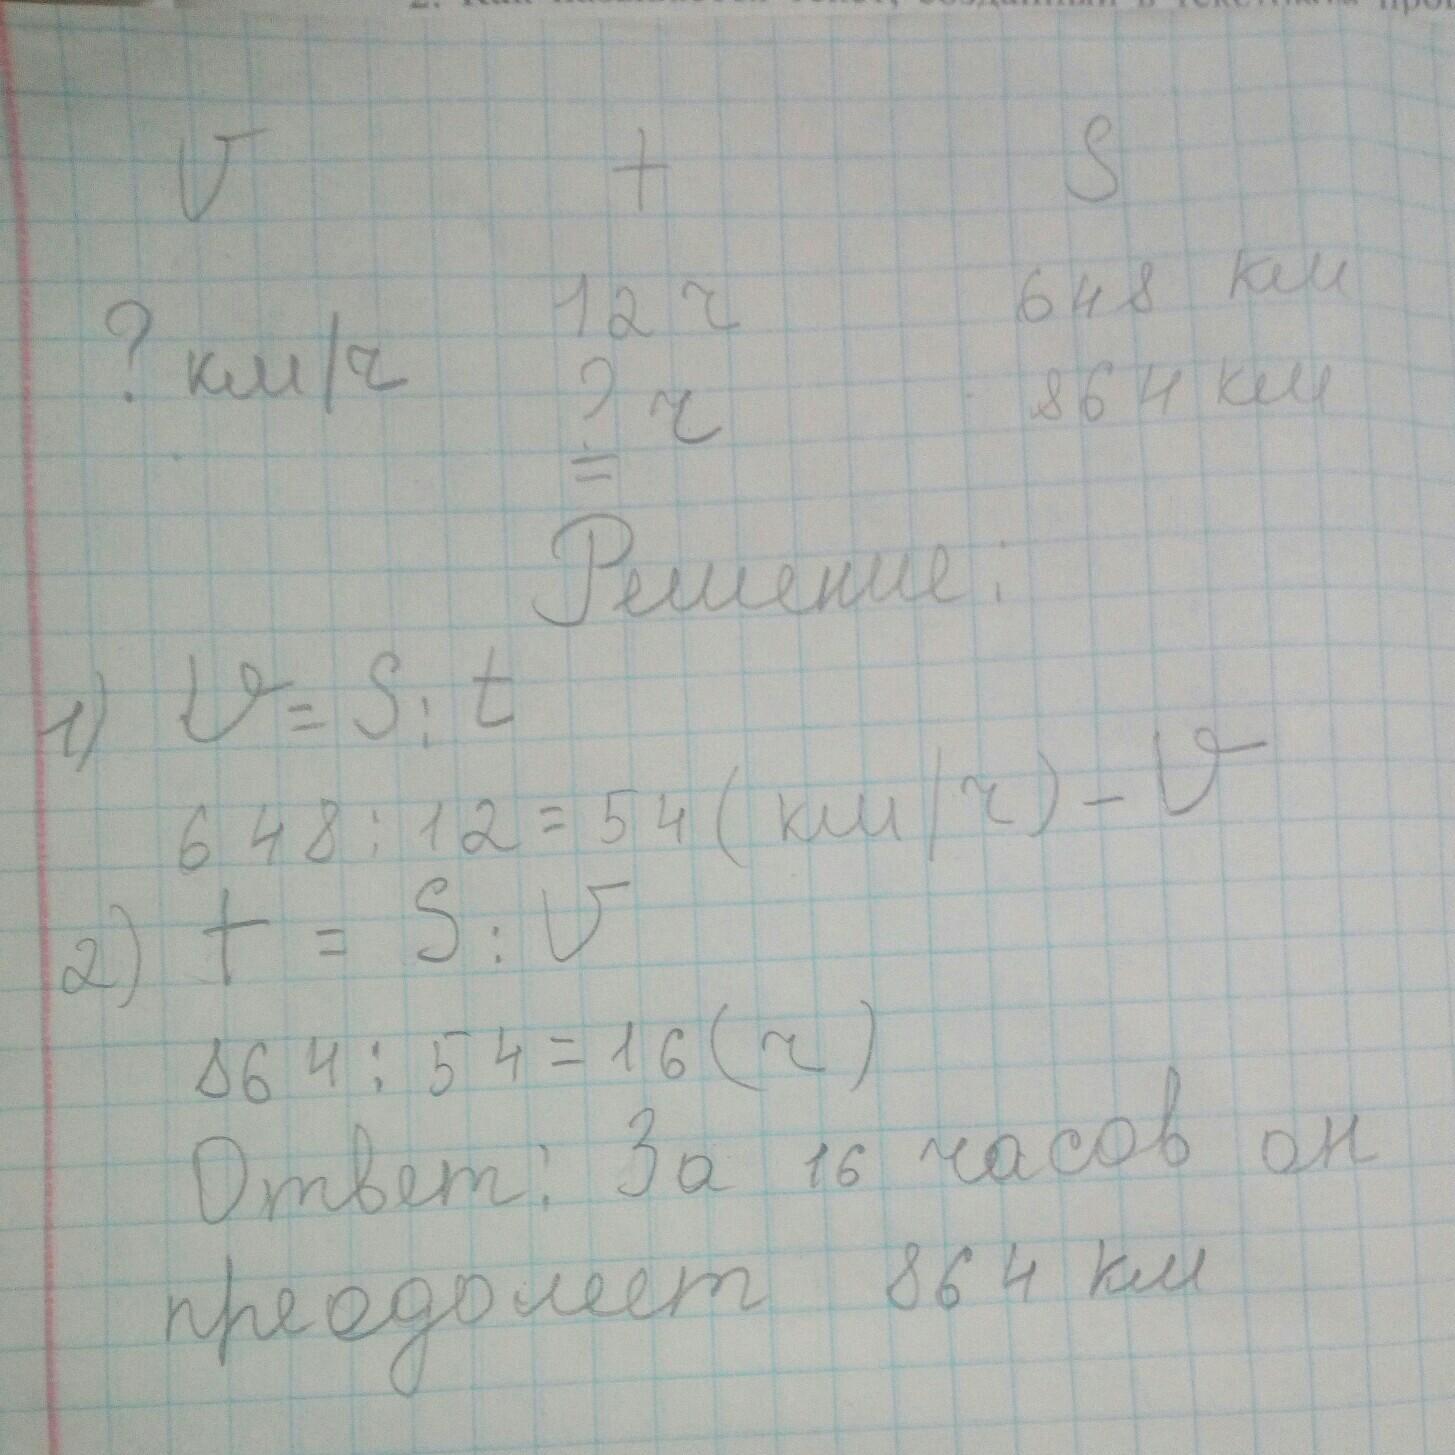 2. Как называется текст, созданный в текстовом
V t S
12 ч 648 км
? км/ч
? ч 864 км
=
Решение:
1) V = S : t
648 : 12 = 54 (км/ч) – V
2) t = S : V
864 : 54 = 16 (ч)
Ответ: За 16 часов он
преодолеет 864 км